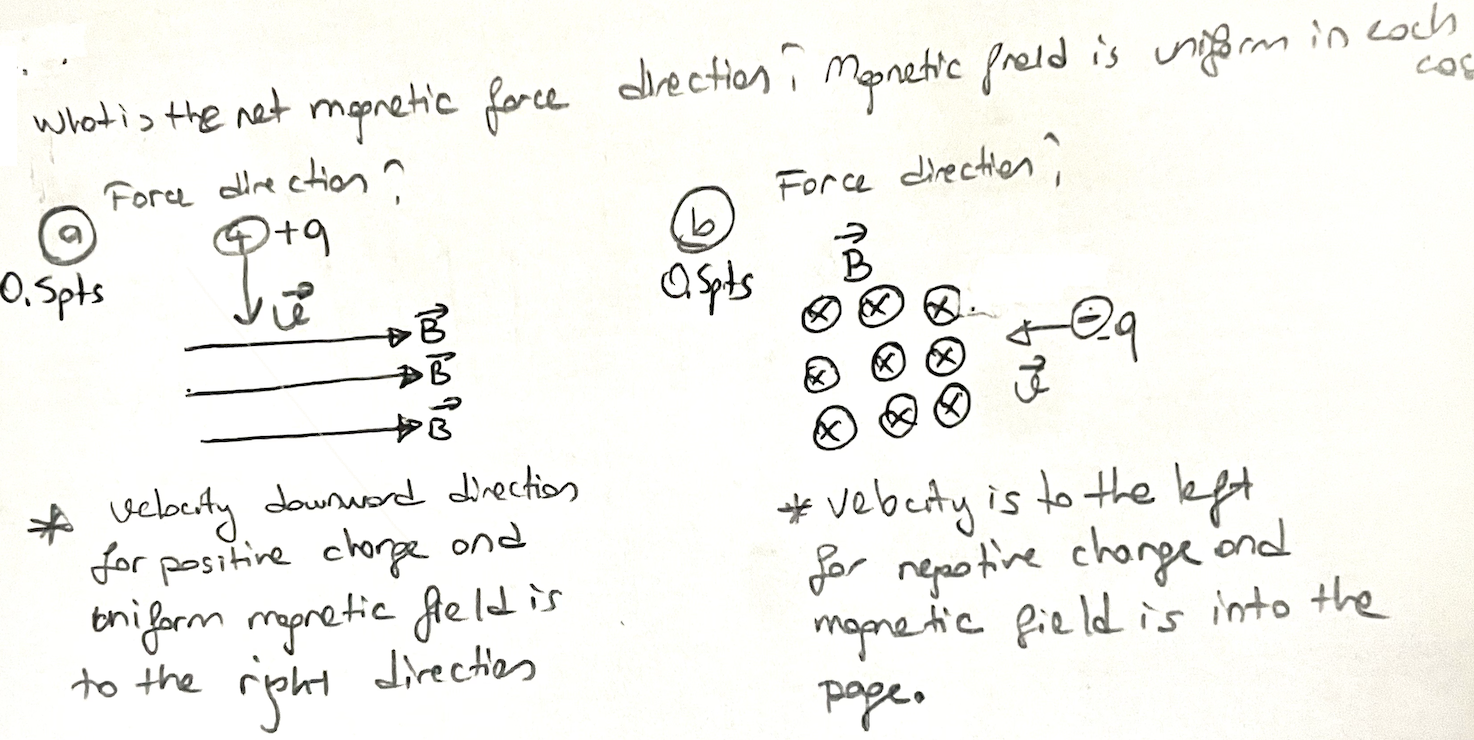 What is the net magnetic force direction? Magnetic field is uniform in each
Force direction?
a
0.5pts
+ +q
v
B
B
B
* velocity downward direction
for positive charge and
uniform magnetic field is
to the right direction
Force direction?
b
0.5pts
B
x x x
- -q
x x x
v
x x x
* velocity is to the left
for negative charge and
magnetic field is into the
page.